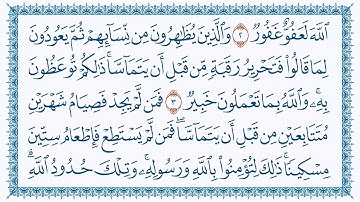 اللَّهَ لَعَفُوٌّ غَفُورٌ ٢ وَالَّذِينَ يُظَاهِرُونَ مِن نِّسَائِهِمْ ثُمَّ يَعُودُونَ
لِمَا قَالُوا فَتَحْرِيرُ رَقَبَةٍ مِّن قَبْلِ أَن يَتَمَاسَّا ذَٰلِكُمْ تُوعَظُونَ
بِهِ وَاللَّهُ بِمَا تَعْمَلُونَ خَبِيرٌ ٣ فَمَن لَّمْ يَجِدْ فَصِيَامُ شَهْرَيْنِ
مُتَتَابِعَيْنِ مِن قَبْلِ أَن يَتَمَاسَّا فَمَن لَّمْ يَسْتَطِعْ فَإِطْعَامُ سِتِّينَ
مِسْكِينًا ذَٰلِكَ لِتُؤْمِنُوا بِاللَّهِ وَرَسُولِهِ وَتِلْكَ حُدُودُ اللَّهِ